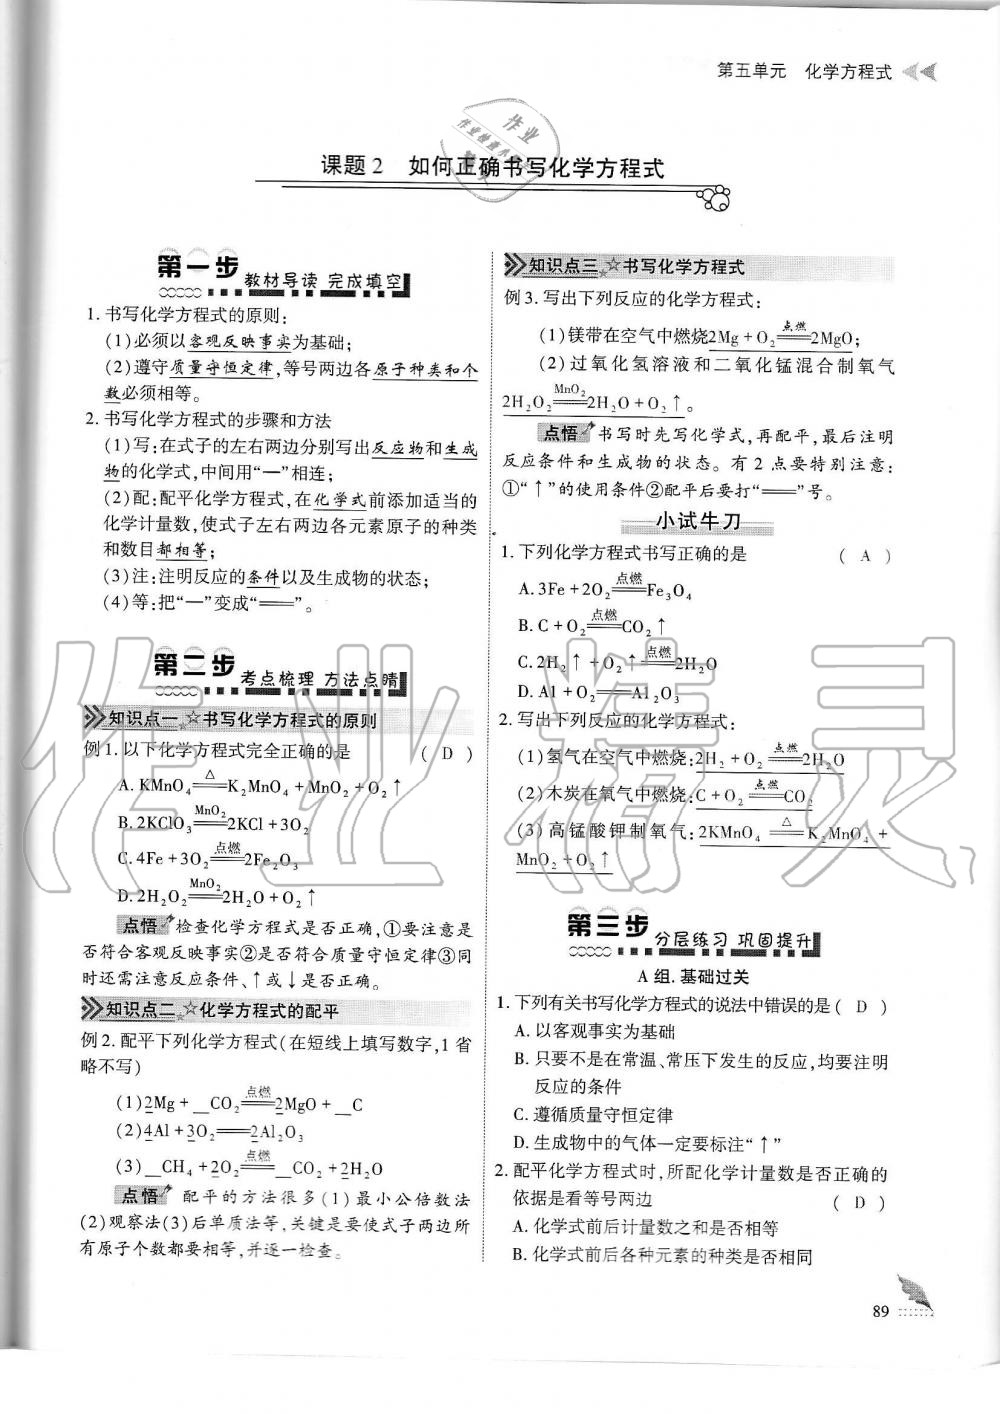 第五单元 化学方程式
课题2 如何正确书写化学方程式
第一步 教材导读 完成填空
1. 书写化学方程式的原则:
(1)必须以客观反映事实为基础;
(2)遵守质量守恒定律,等号两边各原子种类和个
数必须相等。
2. 书写化学方程式的步骤和方法
(1)写:在式子的左右两边分别写出反应物和生成
物的化学式,中间用“—”相连;
(2)配:配平化学方程式,在化学式前添加适当的
化学计量数,使式子左右两边各元素原子的种类
和数目都相等;
(3)注:注明反应的条件以及生成物的状态;
(4)等:把“—”变成“══”。
第二步 考点梳理 方法点睛
知识点一 ☆书写化学方程式的原则
例1. 以下化学方程式完全正确的是 ( D )
A. KMnO₄ ══△ K₂MnO₄ + MnO₂ + O₂↑
B. 2KClO₃ ══MnO₂ 2KCl + 3O₂
C. 4Fe + 3O₂ ══点燃 2Fe₂O₃
D. 2H₂O₂ ══MnO₂ 2H₂O + O₂↑
点悟 检查化学方程式是否正确,①要注意是
否符合客观反映事实②是否符合质量守恒定律③同
时还需注意反应条件、↑或↓是否正确。
知识点二 ☆化学方程式的配平
例2. 配平下列化学方程式(在短线上填写数字,1省
略不写)
(1)2Mg + _CO₂ ══点燃 2MgO + _C
(2)4Al + 3O₂ ══ 2Al₂O₃
(3)_CH₄ + 2O₂ ══点燃 _CO₂ + 2H₂O
点悟 配平的方法很多(1)最小公倍数法
(2)观察法(3)后单质法等,关键是要使式子两边所
有原子个数都要相等,并逐一检查。
知识点三 ☆书写化学方程式
例3. 写出下列反应的化学方程式:
(1)镁带在空气中燃烧2Mg + O₂ ══点燃 2MgO;
(2)过氧化氢溶液和二氧化锰混合制氧气
2H₂O₂ ══MnO₂ 2H₂O + O₂↑。
点悟 书写时先写化学式,再配平,最后注明
反应条件和生成物的状态。有2点要特别注意:
①“↑”的使用条件②配平后要打“══”号。
小试牛刀
1. 下列化学方程式书写正确的是 ( A )
A. 3Fe + 2O₂ ══点燃 Fe₃O₄
B. C + O₂ ══点燃 CO₂↑
C. 2H₂↑ + O₂↑ ══点燃 2H₂O
D. Al + O₂ ══ Al₂O₃
2. 写出下列反应的化学方程式:
(1)氢气在空气中燃烧:2H₂ + O₂ ══点燃 2H₂O
(2)木炭在氧气中燃烧:C + O₂ ══点燃 CO₂
(3)高锰酸钾制氧气:2KMnO₄ ══△ K₂MnO₄ +
MnO₂ + O₂↑
第三步 分层练习 巩固提升
A组. 基础过关
1. 下列有关书写化学方程式的说法中错误的是( D )
A. 以客观事实为基础
B. 只要不是在常温、常压下发生的反应,均要注明
反应的条件
C. 遵循质量守恒定律
D. 生成物中的气体一定要标注“↑”
2. 配平化学方程式时,所配化学计量数是否正确的
依据是看等号两边 ( D )
A. 化学式前后计量数之和是否相等
B. 化学式前后各种元素的种类是否相同
89
作业精灵